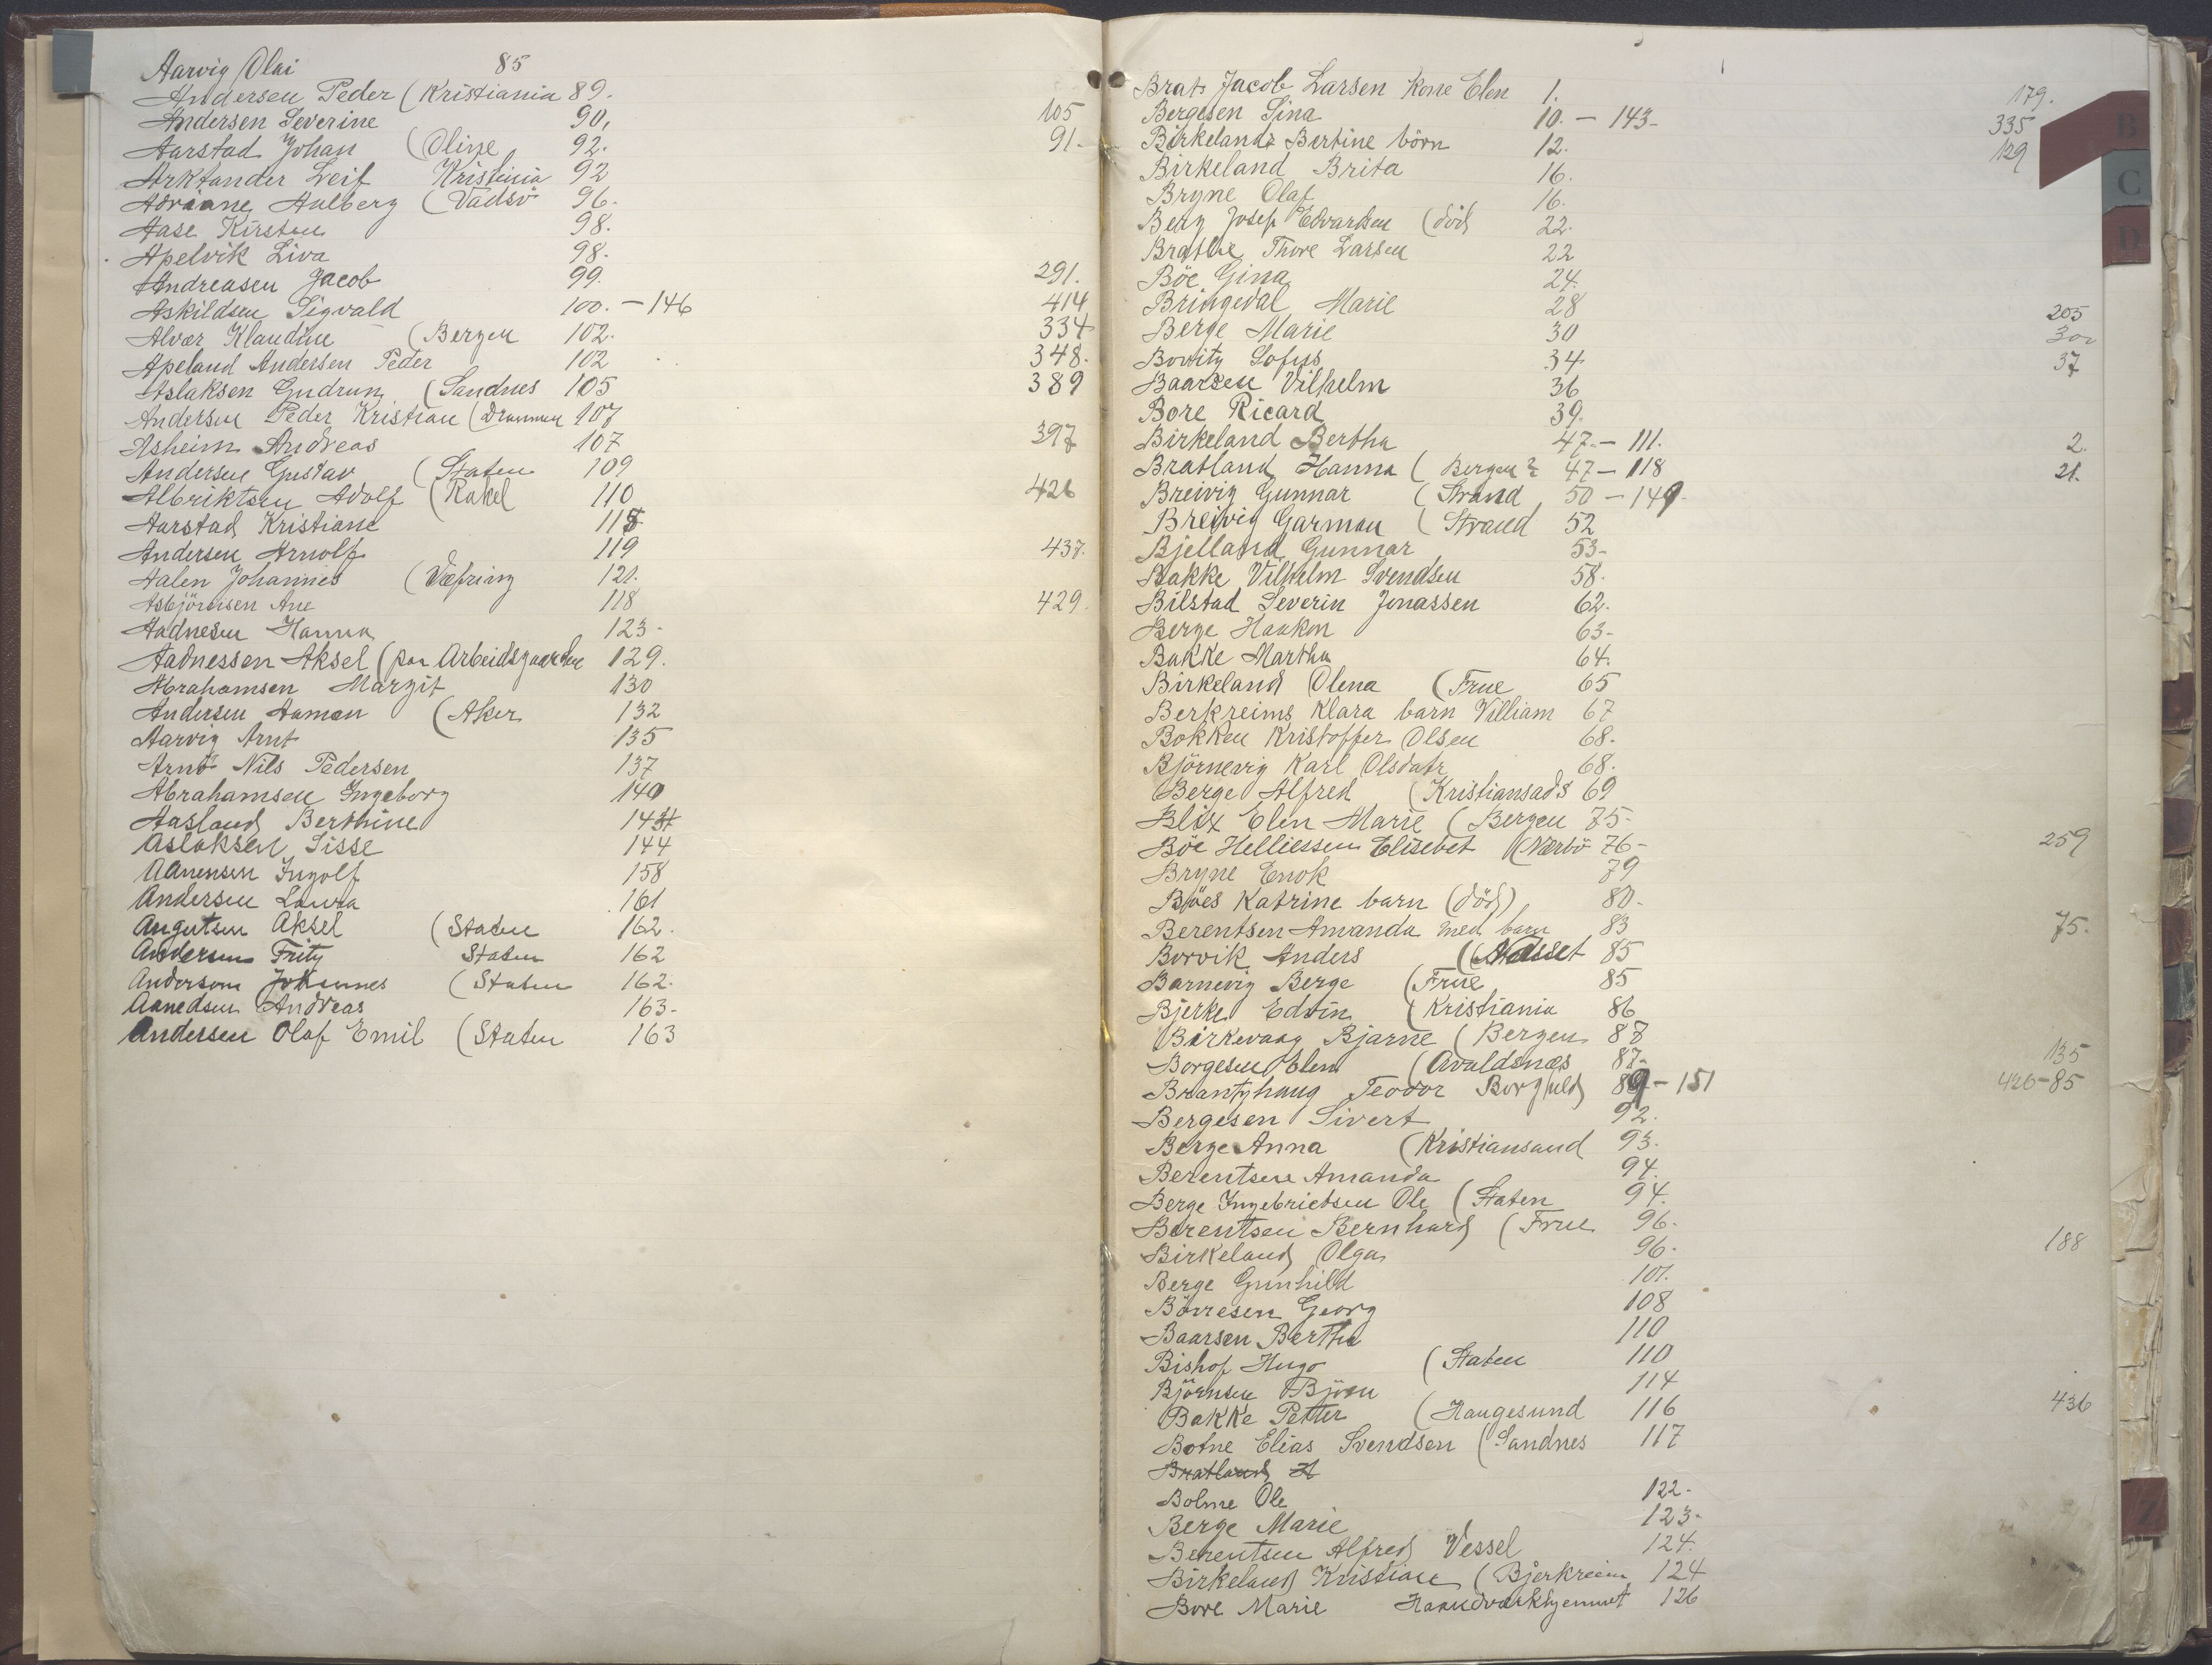 Aarvig Olai 85
Andersen Peder (Kristiania 89.
Andersen Severine 90, 105
Aarstad Johan (Oline 92. 91.
Arktander Leif Kristinia 92
Adriane Aulberg (Vadsö 96.
Aase Kirsten 98.
Apelvik Liva 98.
Andreasen Jacob 99. 291.
Askildsen Sigvald 100. - 146 414
Alvær Klaudine (Bergen 102. 334
Apeland Andersen Peder 102 348.
Aslaksen Gudrun (Sandnes 105 389
Andersen Peder Kristian (Drammen 107
Asheim Andreas 107 397
Andersen Gustav (Staten 109
Albriktsen Adolf (Rakel 110 426
Aarstad Kristiane 118
Andersen Arnolf 119 437.
Aalen Johannes 121.
Asbjörnsen Ane 118 429.
Aadnesen Hanna 123-
Aadnessen Aksel (paa Arbeidsgaarden 129.
Abrahamsen Margit 130
Andersen Aaman (Aker 132
Aarvig Arnt 135
Arnö Nils Pedersen 137
Abrahamsen Ingeborg 140
Aasland Berthine
Aslaksen Sisse 144
Aanensen Ingolf 158
Andersen Laura 161
Angutsen Aksel (Staten 162.
Andersen Fritz Staten 162
Anderson Johannes (Staten 162.
Aanedsen Andreas 163-
Andersen Olaf Emil (Staten 163
B
C
D
Z
Brat Jacob Larsen Kone Elen 1. 179.
Bergesen Sina 10. - 143- 335
Birkelands Bertine börn 12. 129
Birkeland Brita 16.
Bryne Olaf 16.
Berg Josef Edvardsen (död 22.
Brathe Thore Larsen 22
Böe Gina 24.
Bringedal Marie 28 205
Berge Marie 30 300
Bowitz Sofus 34 37
Baarsen Vilhelm 36
Bore Ricard 39.
Birkeland Bertha 47. - 111. 2.
Bratland Hanna (Bergen? 47 - 118 21.
Breivig Gunnar (Strand 50 - 149-
Breivig Garman (Strand 52
Bjelland Gunnar 53-
Bakke Vilhelm Svendsen 58.
Bilstad Severin Jonassen 62.
Berge Haakon 63-
Bakke Martha 64.
Birkeland Olena (Frue 65
Berkreims Klara barn Villiam 67
Bokken Kristoffer Olsen 68.
Björnevig Karl Olsdatr 68.
Berge Alfred (Kristiansads 69
Blix Elen Marie (Bergen 75-
Böe Helliessen Elisebet (Nærbö 76- 259
Bryne Enok 79
Böes Katrine barn (död) 80-
Berentsen Amanda med barn 83 75.
Borvik Anders (Nesset 85
Barnevig Berge (Frue 85
Bjerke Edvin (Kristiania 86
Birkevaag Bjarne (Bergen 87
Borgesen Elen (Avaldsnæs 87- 135
Brantzhaug Teodor 89 - 151 426-85
Bergesen Sivert 92.
Berge Anna (Kristiansand 93.
Berentsen Amanda 94.
Berge Ingebrietsen Ole (Staten 94.
Berentsen Bernhard (Frue 96.
Birkeland Olga 96. 188
Berge Gunhild 107.
Börresen Georg 108
Baarsen Bertha 110
Bishof Hugo (Staten 110
Björnsen Björn 114
Bakke Petter (Haugesund 116 436
Botne Elias Svendsen (Sandnes 117
Bratland H
Bolme Ole 122.
Berge Marie 123-
Berentsen Alfred Vessel 124.
Birkeland Kristian (Bjerkreim 124
Bore Marie Haandværkhjemmet 126